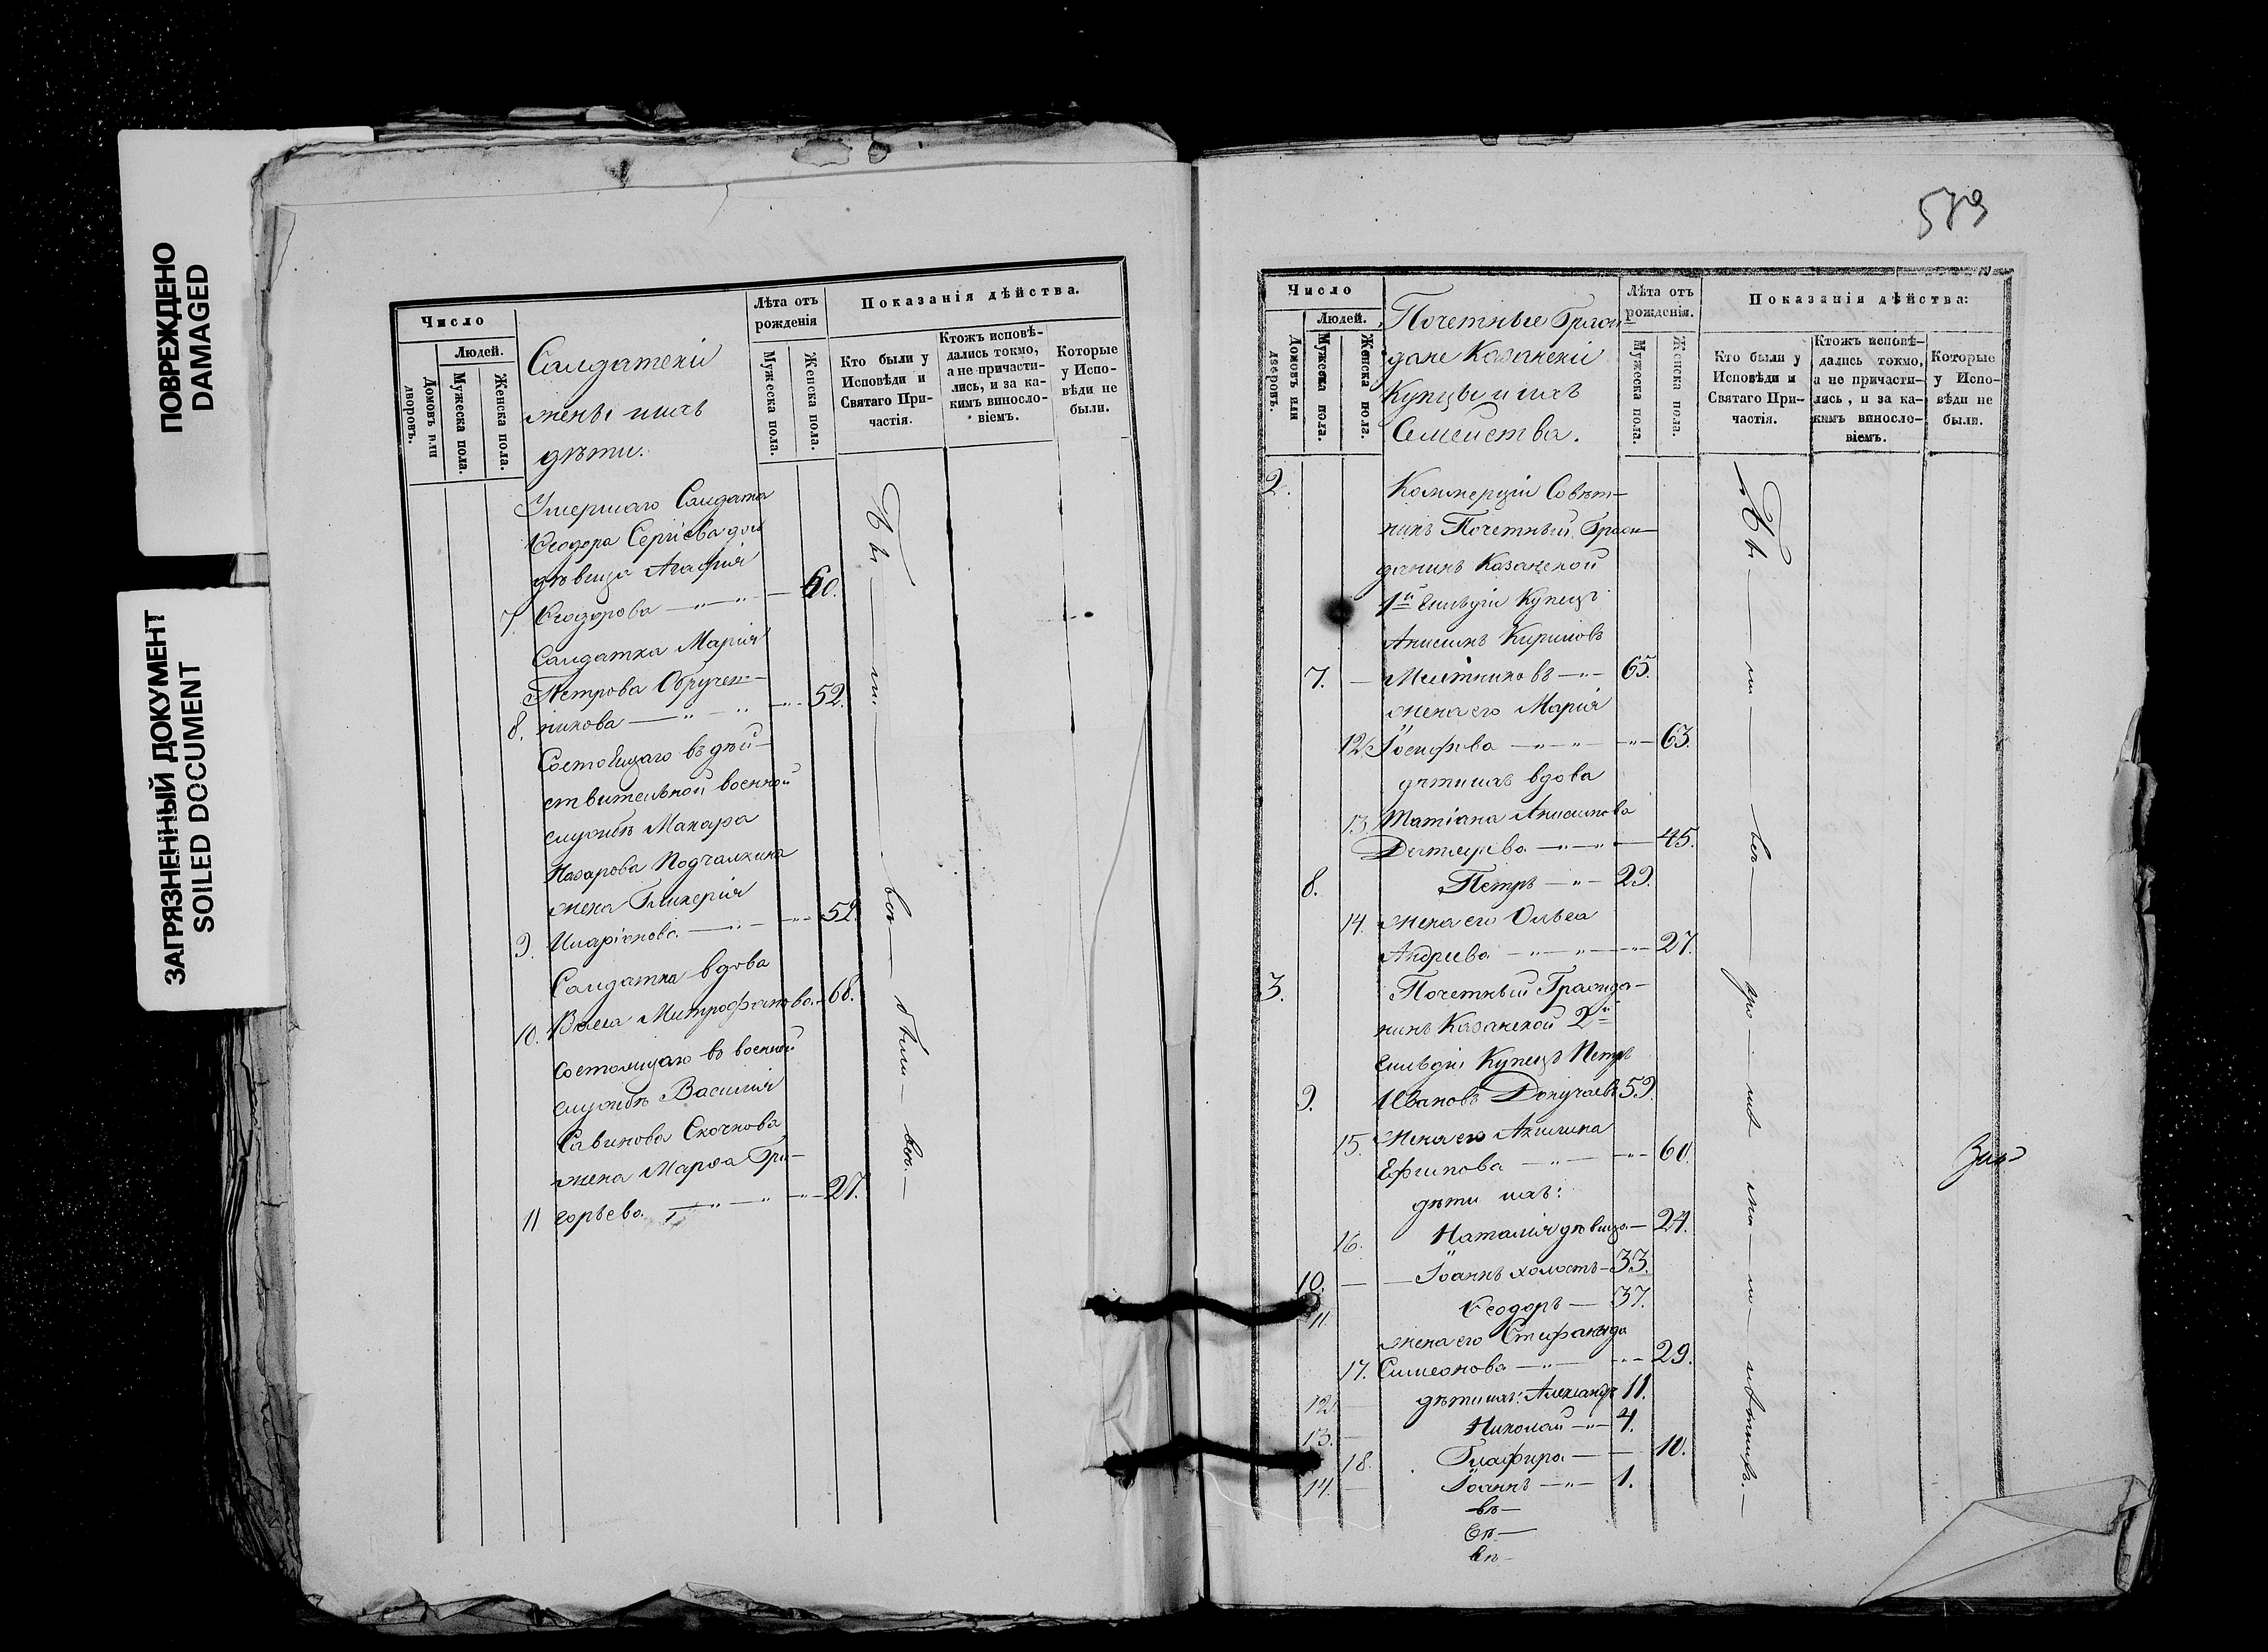 ПОВРЕЖДЕНО
DAMAGED
ЗАГРЯЗНЕННЫЙ ДОКУМЕНТ
SOILED DOCUMENT
Число
Людей.
Домовъ или дворовъ.
Мужеска пола.
Женска пола.
Солдатскiя
жены и ихъ
дѣти.
Лѣта отъ
рожденія
Мужеска пола.
Женска пола.
Показанія дѣйства.
Кто были у
Исповѣди и
Святаго При-
частія.
Ктожъ исповѣ-
дались токмо,
а не причасти-
лись, и за ка-
кимъ виносло-
віемъ.
Которые
у Испо-
вѣди не
были.
Умершаго Солдата
Ѳеодора Сергіева дочь
дѣвица Агафія
7. Ѳеодорова 60.
Солдатка Марія
Петрова Обручен-
8. никова 52.
Состоящаго въ дѣй-
ствительной военной
службѣ Макара
Назарова Подчалкина
жена Гликерія
9. Иларіонова 52.
Солдатка вдова
10. Васса Митрофанова 68.
Состоящаго въ военной
службѣ Василія
Савинова Скочкова
жена Марѳа Гри-
11 горьева 27.
Въ ли вск были
579
Число
Людей.
Домовъ или дворовъ.
Мужеска пола.
Женска пола.
Почетные Граж-
дане Казанскіи
Купцы и ихъ
Семейства.
Лѣта отъ
рожденія.
Мужеска пола.
Женска пола.
Показанія дѣйства:
Кто были у
Исповѣди и
Святаго При-
частія.
Ктожъ исповѣ-
дались токмо,
а не причасти-
лись, и за ка-
кимъ виносло-
віемъ.
Которые
у Испо-
вѣди не
были.
2. Коммерціи Совѣт-
никъ Почетный Граж-
данинъ Казанской
1й Гильдіи Купецъ
Анисимъ Кириловъ
7. Месетниковъ 65.
жена его Марія
12. Іосифова 63.
дѣти ихъ вдова
13. Татіана Анисимова
Дегтярева 45.
8. Петръ 29.
14. жена его Ольга
Андреева 27.
3. Почетный Гражда-
нинъ Казанской 2й
Гильдіи Купецъ Петръ
9. Ивановъ Докучаевъ 59.
15. жена его Акилина
Ефимова 60.
дѣти ихъ:
16. Наталія дѣвица 24.
10. Іоаннъ холостъ 33.
11. Ѳеодоръ 37.
жена его Стефанида
17. Симеонова 29.
12. дѣти ихъ: Александръ 11.
13. Николай 4.
18. Глафира 10.
14. Іоаннъ 1.